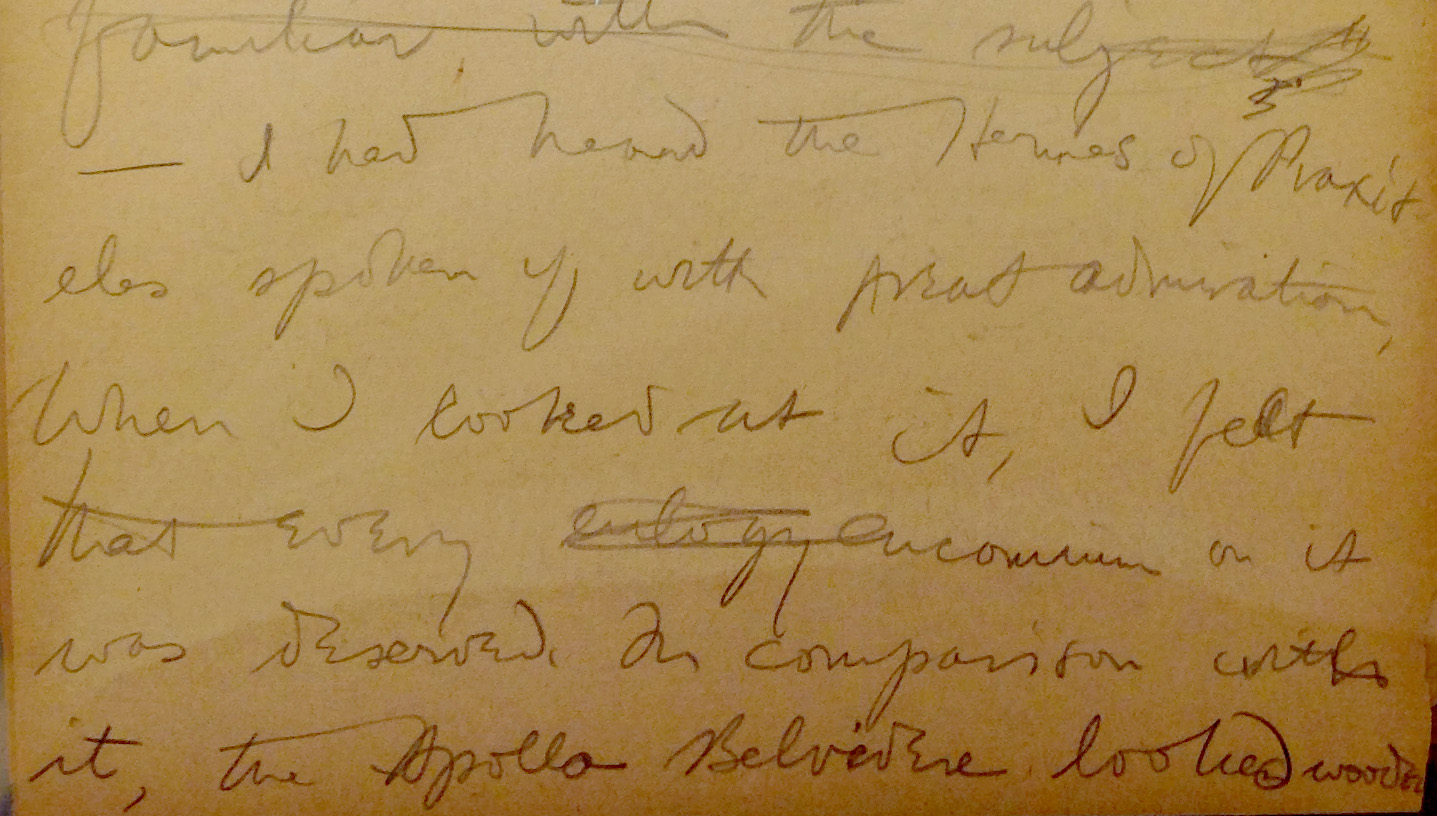 familiar with the subject
— I had heard the Hermes of Praxit
eles spoken of with great admiration,
When I looked at it, I felt
that every eulogy encomium on it
was deserved. In comparison with
it, the Apollo Belvedere looked wooden